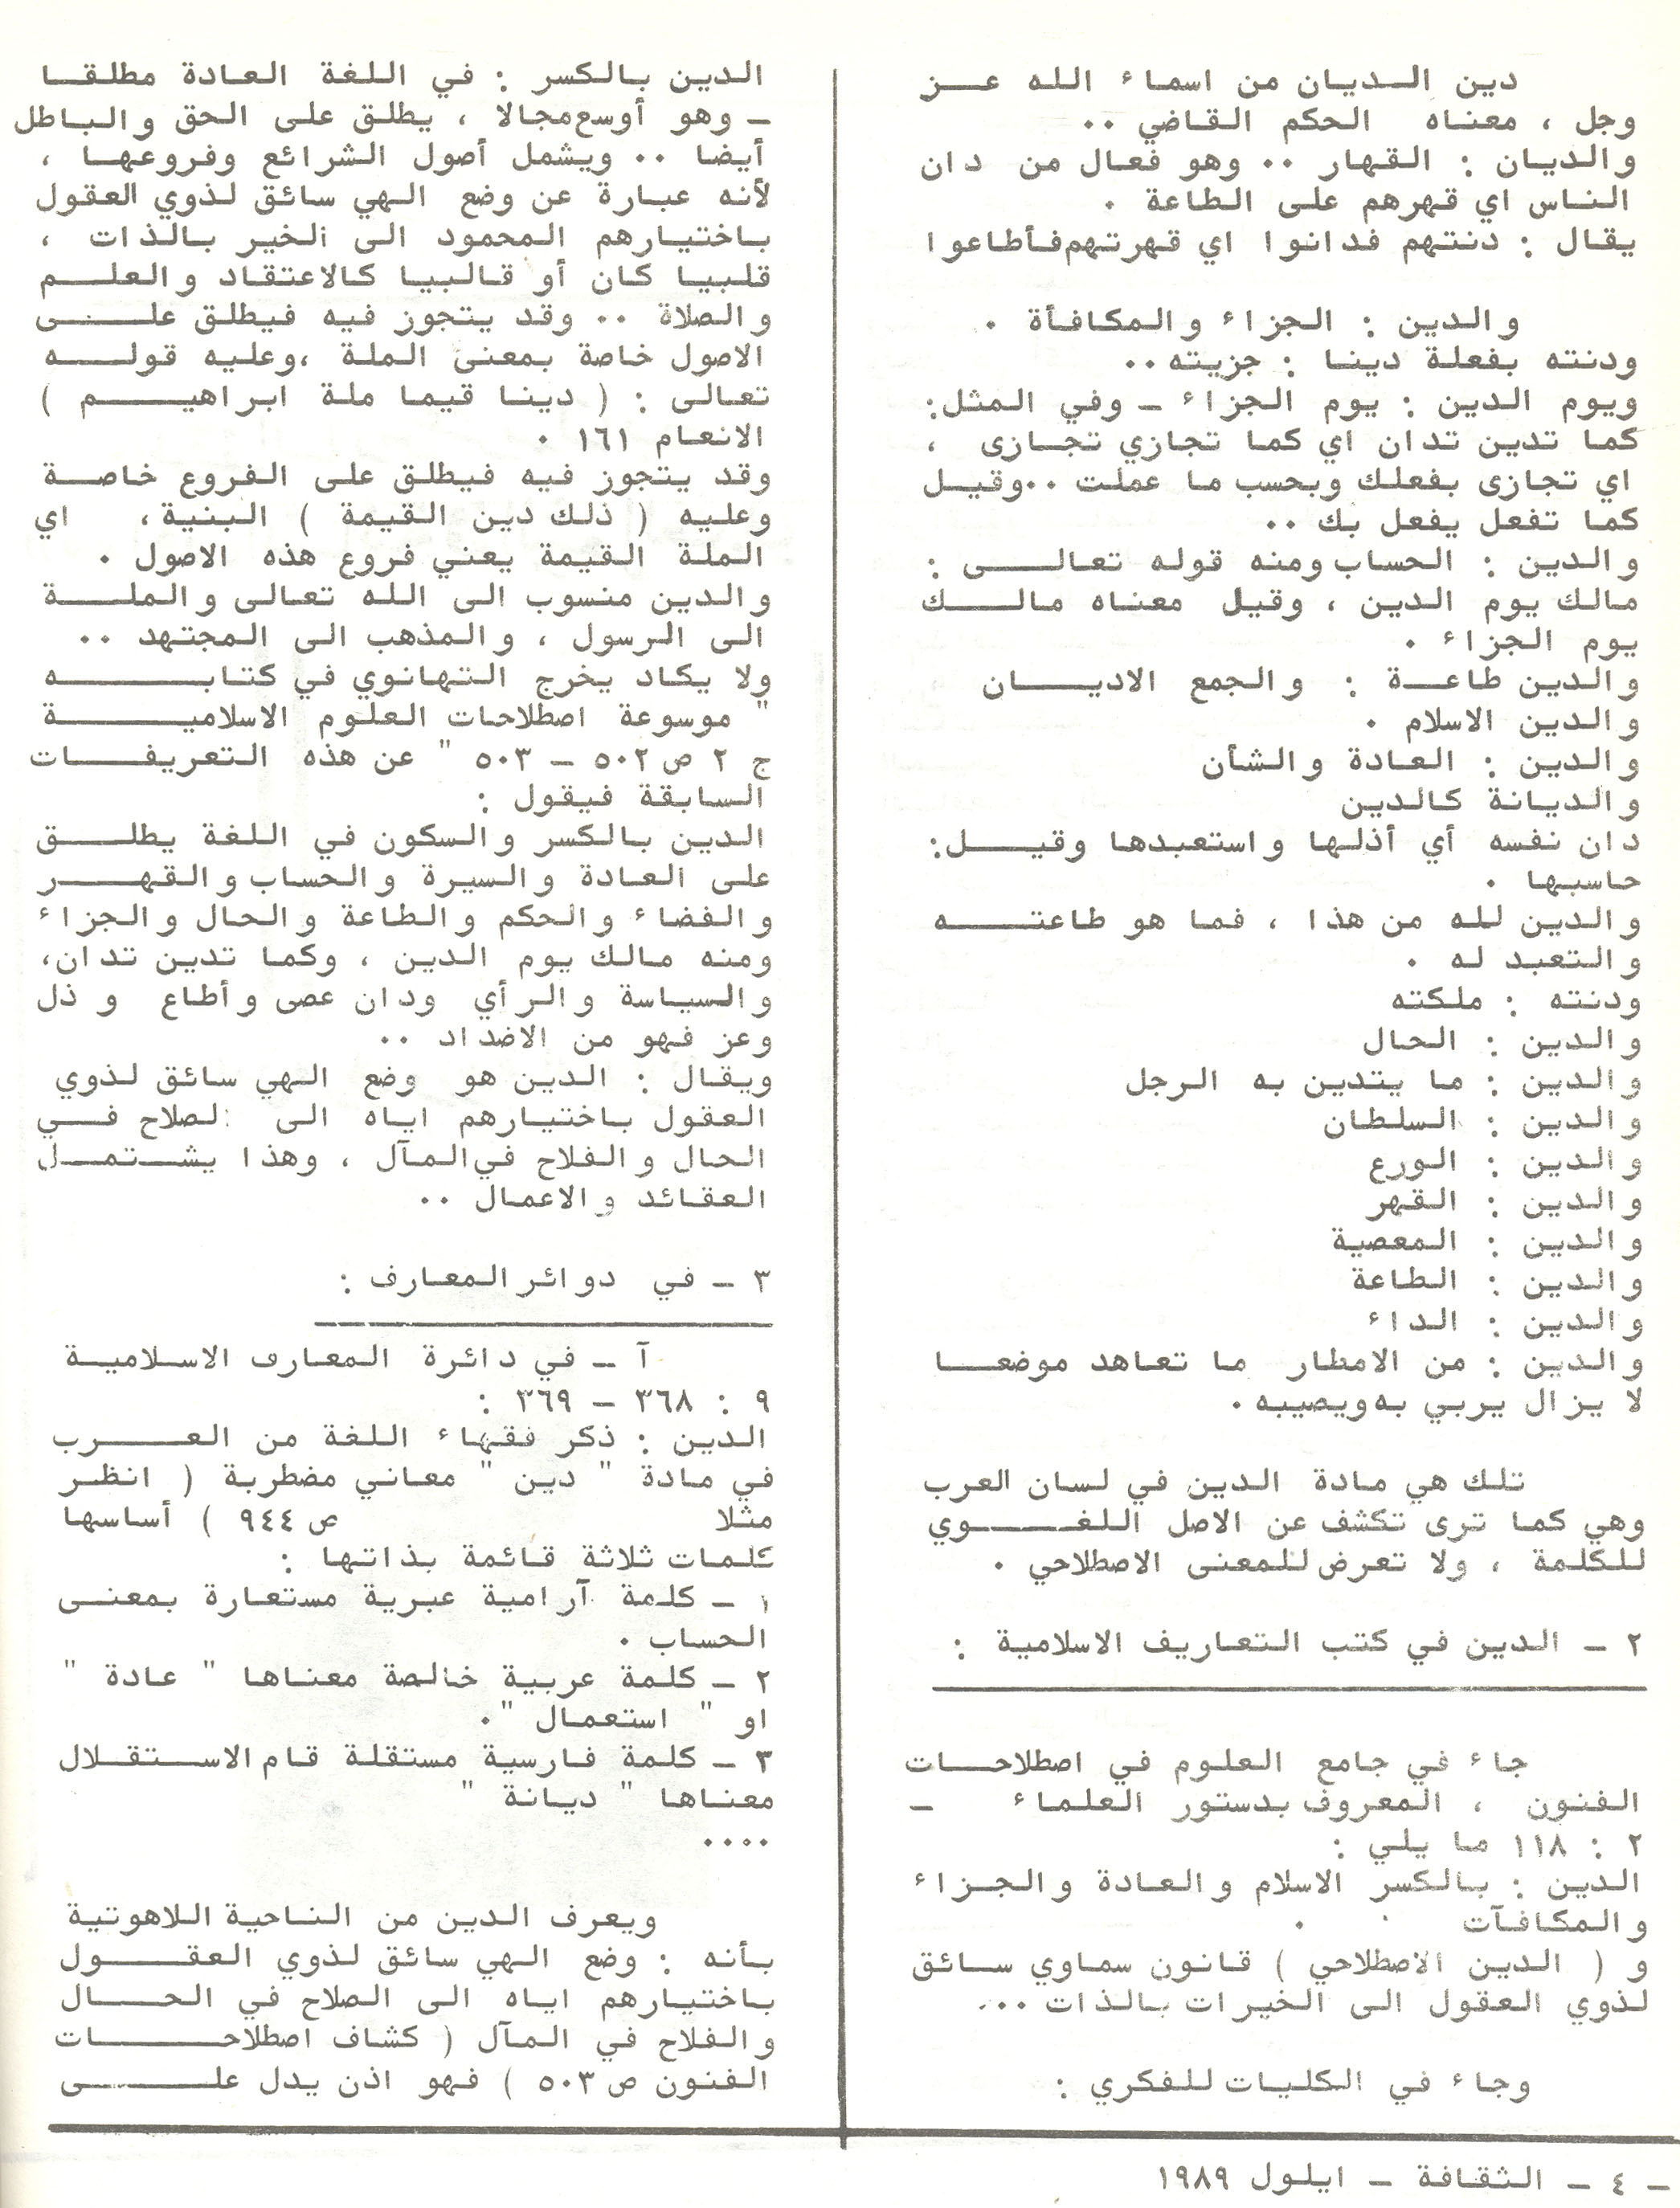 دين الديان من اسماء الله عز
وجل ، معناه الحكم القاضي ..
والديان : القهار .. وهو فعال من دان
الناس اي قهرهم على الطاعة .
يقال : دنتهم فدانوا اي قهرتهم فأطاعوا
والدين : الجزاء والمكافأة .
ودنته بفعلة دينا : جزيته ..
ويوم الدين : يوم الجزاء ـ وفي المثل:
كما تدين تدان اي كما تجازي تجازى ،
اي تجازى بفعلك وبحسب ما عملت ..وقيل
كما تفعل يفعل بك ..
والدين : الحساب ومنه قوله تعالى :
مالك يوم الدين ، وقيل معناه مالك
يوم الجزاء .
والدين طاعة : والجمع الاديان
والدين الاسلام .
والدين : العادة والشأن
والديانة كالدين
دان نفسه أي أذلها واستعبدها وقيل:
حاسبها .
والدين لله من هذا ، فما هو طاعته
والتعبد له .
ودنته : ملكته
والدين : الحال
والدين : ما يتدين به الرجل
والدين : السلطان
والدين : الورع
والدين : القهر
والدين : المعصية
والدين : الطاعة
والدين : الداء
والدين : من الامطار ما تعاهد موضعا
لا يزال يربي به ويصيبه .
تلك هي مادة الدين في لسان العرب
وهي كما ترى تكشف عن الاصل اللغوي
للكلمة ، ولا تعرض للمعنى الاصطلاحي .
٢ ـ الدين في كتب التعاريف الاسلامية :
جاء في جامع العلوم في اصطلاحات
الفنون ، المعروف بدستور العلماء ـ
٢ : ١١٨ ما يلي :
الدين : بالكسر الاسلام والعادة والجزاء
والمكافآت .
و ( الدين الاصطلاحي ) قانون سماوي سائق
لذوي العقول الى الخيرات بالذات ...
وجاء في الكليات للفكري :
الدين بالكسر : في اللغة العادة مطلقا
ـ وهو أوسع مجالا ، يطلق على الحق والباطل
أيضا .. ويشمل أصول الشرائع وفروعها ،
لأنه عبارة عن وضع الهي سائق لذوي العقول
باختيارهم المحمود الى الخير بالذات ،
قلبيا كان أو قالبيا كالاعتقاد والعلم
والصلاة .. وقد يتجوز فيه فيطلق على
الاصول خاصة بمعنى الملة ،وعليه قوله
تعالى : ( دينا قيما ملة ابراهيم )
الانعام ١٦١ .
وقد يتجوز فيه فيطلق على الفروع خاصة
وعليه ( ذلك دين القيمة ) البنية، اي
الملة القيمة يعني فروع هذه الاصول .
والدين منسوب الى الله تعالى والملة
الى الرسول ، والمذهب الى المجتهد ..
ولا يكاد يخرج التهانوي في كتابه
" موسوعة اصطلاحات العلوم الاسلامية
ج ٢ ص ٥٠٢ ـ ٥٠٣ " عن هذه التعريفات
السابقة فيقول :
الدين بالكسر والسكون في اللغة يطلق
على العادة والسيرة والحساب والقهر
والفضاء والحكم والطاعة والحال والجزاء
ومنه مالك يوم الدين ، وكما تدين تدان،
والسياسة والرأي ودان عصى وأطاع وذل
وعز فهو من الاضداد ..
ويقال : الدين هو وضع الهي سائق لذوي
العقول باختيارهم اياه الى الصلاح في
الحال والفلاح في المآل ، وهذا يشتمل
العقائد والاعمال ..
٣ ـ في دوائر المعارف :
آ ـ في دائرة المعارف الاسلامية
٩ : ٣٦٨ ـ ٣٦٩ :
الدين : ذكر فقهاء اللغة من العرب
في مادة " دين " معاني مضطربة ( انظر
مثلا ص ٩٤٤ ) أساسها
كلمات ثلاثة قائمة بذاتها :
١ ـ كلمة آرامية عبرية مستعارة بمعنى
الحساب .
٢ ـ كلمة عربية خالصة معناها " عادة "
او " استعمال " .
٣ ـ كلمة فارسية مستقلة قام الاستقلال
معناها " ديانة "
....
ويعرف الدين من الناحية اللاهوتية
بأنه : وضع الهي سائق لذوي العقول
باختيارهم اياه الى الصلاح في الحال
والفلاح في المآل ( كشاف اصطلاحات
الفنون ص ٥٠٣ ) فهو اذن يدل على
ـ ٤ ـ الثقافة ـ ايلول ١٩٨٩